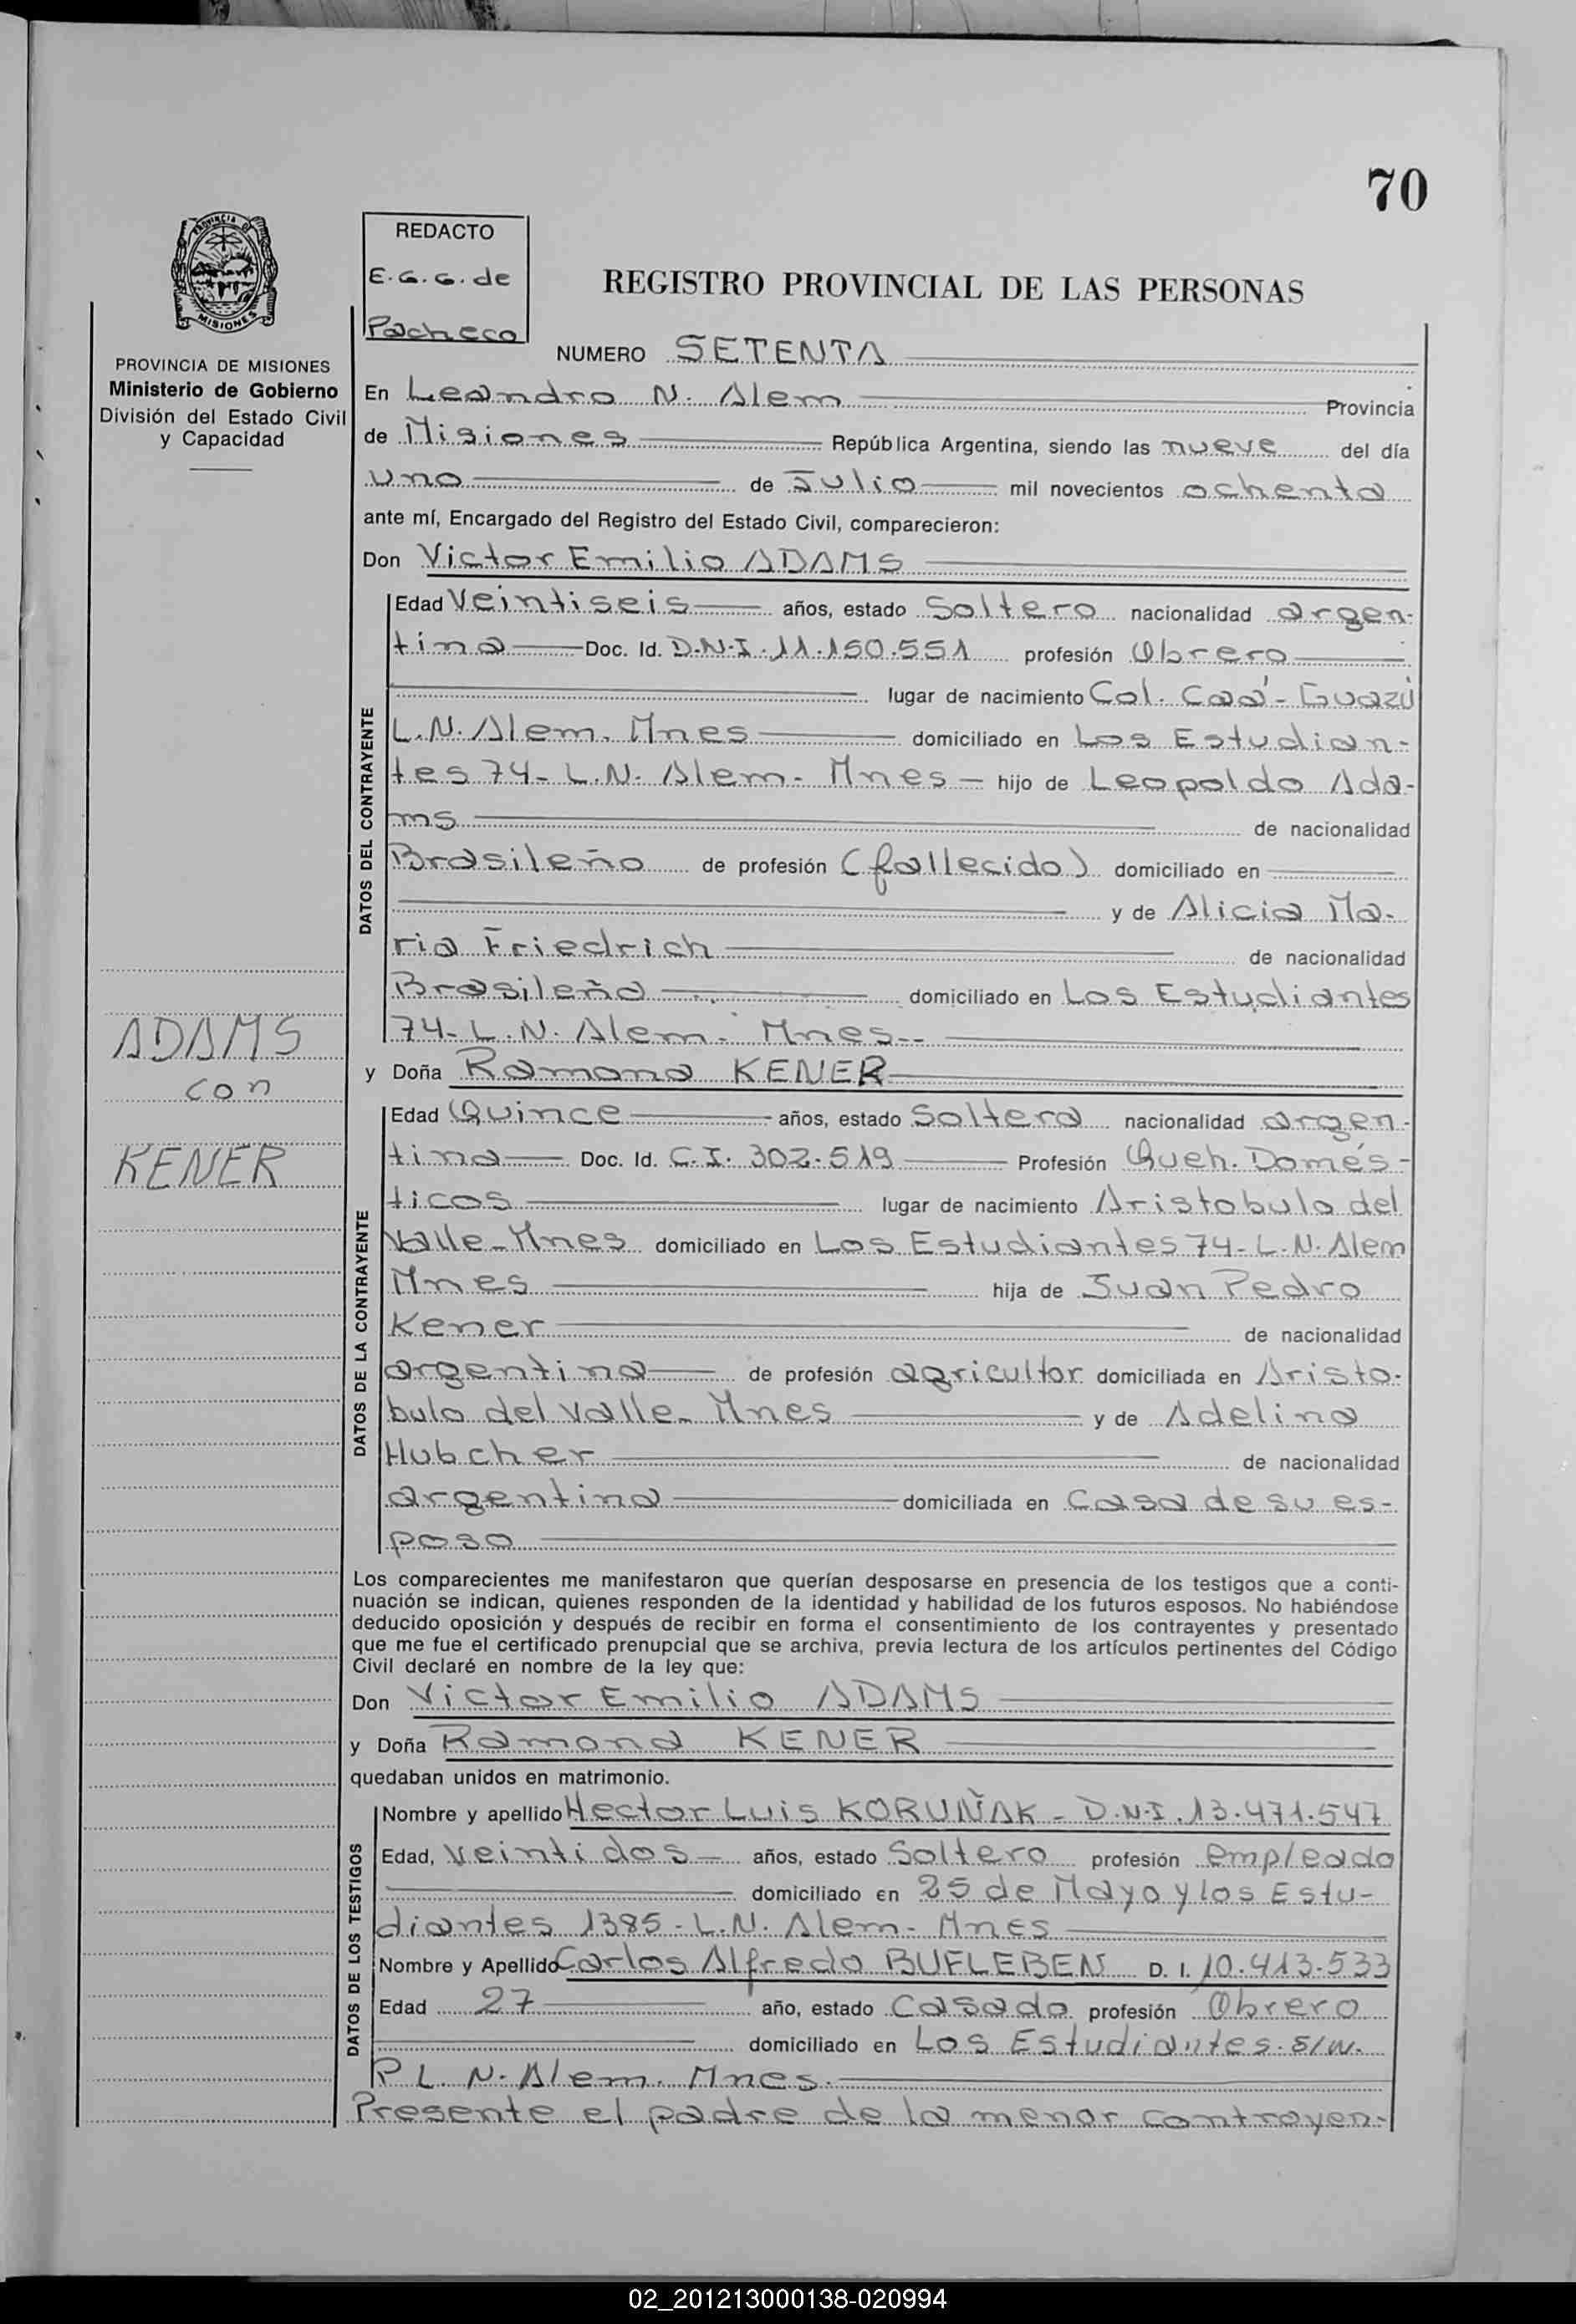 70
REDACTO
E.G.G. de
Pacheco
REGISTRO PROVINCIAL DE LAS PERSONAS
PROVINCIA DE MISIONES
Ministerio de Gobierno
División del Estado Civil
y Capacidad
NUMERO SETENTA
En Leandro N. Alem Provincia
de Misiones República Argentina, siendo las nueve del día
uno de Julio mil novecientos ochenta
ante mí, Encargado del Registro del Estado Civil, comparecieron:
Don Victor Emilio ADAMS
DATOS DEL CONTRAYENTE
Edad Veintiseis años, estado Soltero nacionalidad argen-
tina Doc. Id. D.N.I. 11.150.551 profesión Obrero
lugar de nacimiento Col. Caá-Guazú
L.N. Alem. Mnes domiciliado en Los Estudian-
tes 74- L.N. Alem- Mnes- hijo de Leopoldo Ada-
ms de nacionalidad
Brasileño de profesión (fallecido) domiciliado en
y de Alicia Ma-
ria Friedrich de nacionalidad
Brasileña domiciliado en Los Estudiantes
74- L.N. Alem- Mnes--
y Doña Ramona KENER
ADAMS
con
KENER
DATOS DE LA CONTRAYENTE
Edad Quince años, estado Soltera nacionalidad argen-
tina Doc. Id. C.I. 302.519 Profesión Queh. Domés-
ticos lugar de nacimiento Aristobulo del
Valle-Mnes domiciliado en Los Estudiantes 74- L.N. Alem
Mnes hija de Juan Pedro
Kener de nacionalidad
argentina de profesión agricultor domiciliada en Aristo-
bulo del Valle- Mnes y de Adelina
Hubcher de nacionalidad
argentina domiciliada en Casa de su es-
poso
Los comparecientes me manifestaron que querían desposarse en presencia de los testigos que a conti-
nuación se indican, quienes responden de la identidad y habilidad de los futuros esposos. No habiéndose
deducido oposición y después de recibir en forma el consentimiento de los contrayentes y presentado
que me fue el certificado prenupcial que se archiva, previa lectura de los artículos pertinentes del Código
Civil declaré en nombre de la ley que:
Don Victor Emilio ADAMS
y Doña Ramona KENER
quedaban unidos en matrimonio.
DATOS DE LOS TESTIGOS
Nombre y apellido Hector Luis KORUÑAK - D.N.I. 13.471.547
Edad, Veintidos- años, estado Soltero profesión empleado
domiciliado en 25 de Mayo y los Estu-
diantes 1385- L.N. Alem- Mnes
Nombre y Apellido Carlos Alfredo BUFLEBEN D. I. 10.413.533
Edad 27 año, estado Casado profesión Obrero
domiciliado en Los Estudiantes. S/N.
P L. N. Alem. Mnes.
Presente el padre de la menor contrayen-
02_201213000138-020994